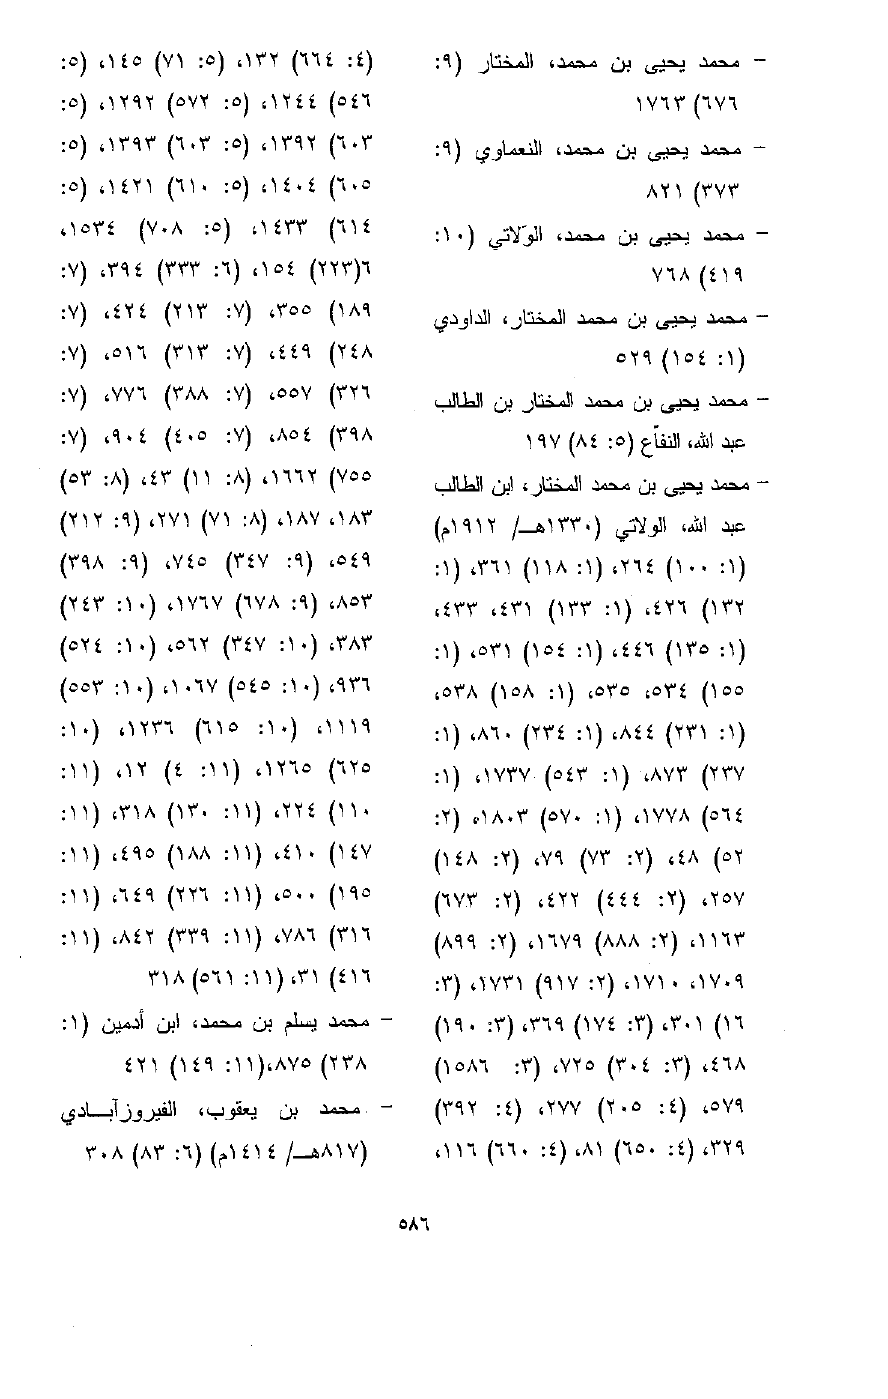 - محمد يحيى بن محمد، المختار (٩:
٦٧٦) ١٧٦٣
- محمد يحيى بن محمد، النعماوي (٩:
٣٧٣) ٨٢١
- محمد يحيى بن محمد، الوَلاتي (١٠:
٤١٩) ٧٦٨
- محمد يحيى بن محمد المختار، الداودي
(١: ١٥٤) ٥٢٩
- محمد يحيى بن محمد المختار بن الطالب
عبد الله، النفاّع (٥: ٨٤) ١٩٧
- محمد يحيى بن محمد المختار، ابن الطالب
عبد الله، الولاتي (١٣٣٠هـ/ ١٩١٢م)
(١: ١٠٠) ٢٦٤، (١: ١١٨) ٣٦١، (١:
١٣٢) ٤٢٦، (١: ١٣٣) ٤٣١، ٤٣٣،
(١: ١٣٥) ٤٤٦، (١: ١٥٤) ٥٣١، (١:
١٥٥) ٥٣٤، ٥٣٥، (١: ١٥٨) ٥٣٨،
(١: ٢٣١) ٨٤٤، (١: ٢٣٤) ٨٦٠، (١:
٢٣٧) ٨٧٣، (١: ٥٤٣) ١٧٣٧، (١:
٥٦٤) ١٧٧٨، (١: ٥٧٠) ١٨٠٣، (٢:
٥٢) ٤٨، (٢: ٧٣) ٧٩، (٢: ١٤٨)
٢٥٧، (٢: ٤٤٤) ٤٢٢، (٢: ٦٧٣)
١١٦٣، (٢: ٨٨٨) ١٦٧٩، (٢: ٨٩٩)
١٧٠٩، ١٧١٠، (٢: ٩١٧) ١٧٣١، (٣:
١٦) ٣٠١، (٣: ١٧٤) ٣٦٩، (٣: ١٩٠)
٤٦٨، (٣: ٣٠٤) ٧٢٥، (٣: ١٥٨٦)
٥٧٩، (٤: ٢٠٥) ٢٧٧، (٤: ٣٩٢)
٣٢٩، (٤: ٦٥٠) ٨١، (٤: ٦٦٠) ١١٦،
(٤: ٦٦٤) ١٣٢، (٥: ٧١) ١٤٥، (٥:
٥٤٦) ١٢٤٤، (٥: ٥٧٢) ١٢٩٢، (٥:
٦٠٣) ١٣٩٢، (٥: ٦٠٣) ١٣٩٣، (٥:
٦٠٥) ١٤٠٤، (٥: ٦١٠) ١٤٢١، (٥:
٦١٤) ١٤٣٣، (٥: ٧٠٨) ١٥٣٤،
٦(٢٢٣) ١٥٤، (٦: ٣٣٣) ٣٩٤، (٧:
١٨٩) ٣٥٥، (٧: ٢١٣) ٤٢٤، (٧:
٢٤٨) ٤٤٩، (٧: ٣١٣) ٥١٦، (٧:
٣٢٦) ٥٥٧، (٧: ٣٨٨) ٧٧٦، (٧:
٣٩٨) ٨٥٤، (٧: ٤٠٥) ٩٠٤، (٧:
٧٥٥) ١٦٦٢، (٨: ١١) ٤٣، (٨: ٥٣)
١٨٣، ١٨٧، (٨: ٧١) ٢٧١، (٩: ٢١٢)
٥٤٩، (٩: ٣٤٧) ٧٤٥، (٩: ٣٩٨)
٨٥٣، (٩: ٦٧٨) ١٧٦٧، (١٠: ٢٤٣)
٣٨٣، (١٠: ٣٤٧) ٥٦٢، (١٠: ٥٢٤)
٩٣٦، (١٠: ٥٤٥) ١٠٦٧، (١٠: ٥٥٣)
١١١٩، (١٠: ٦١٥) ١٢٣٦، (١٠:
٦٢٥) ١٢٦٥، (١١: ٤) ١٢، (١١:
١١٠) ٢٢٤، (١١: ١٣٠) ٣١٨، (١١:
١٤٧) ٤١٠، (١١: ١٨٨) ٤٩٥، (١١:
١٩٥) ٥٠٠، (١١: ٢٢٦) ٦٤٩، (١١:
٣١٦) ٧٨٦، (١١: ٣٣٩) ٨٤٢، (١١:
٤١٦) ٣١، (١١: ٥٦١) ٣١٨
- محمد يسلم بن محمد، ابن أدمين (١:
٢٣٨) ٨٧٥،(١١: ١٤٩) ٤٢١
- محمد بن يعقوب، الفيروزآبـادي
(٨١٧هـ/ ١٤١٤م) (٦: ٨٣) ٣٠٨
٥٨٦